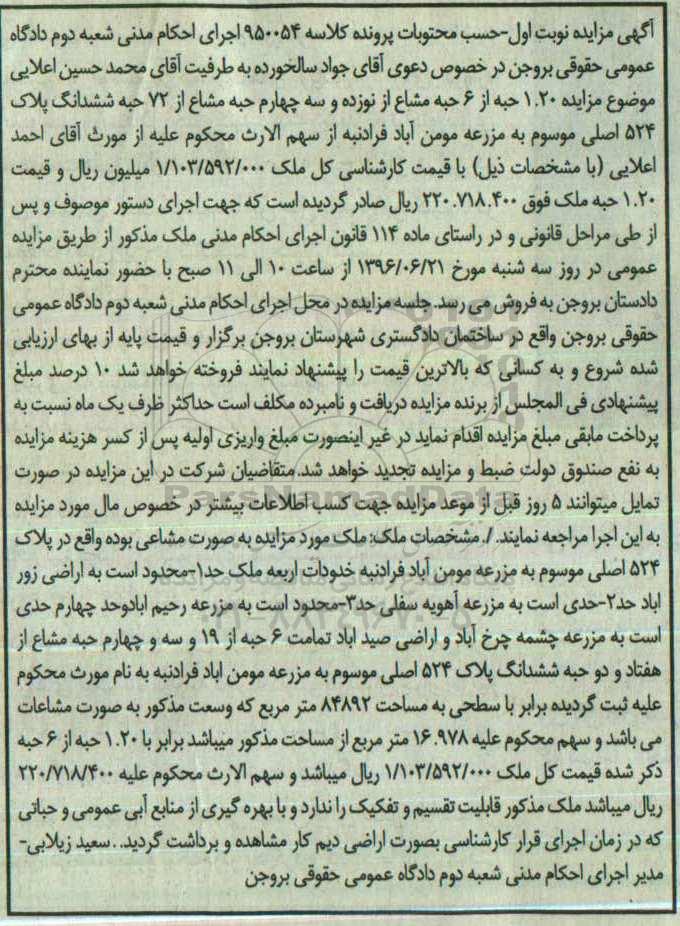 آگهی مزایده نوبت اول-حسب محتویات پرونده کلاسه ۹۵۰۰۵۴ اجرای احکام مدنی شعبه دوم دادگاه
عمومی حقوقی بروجن در خصوص دعوی آقای جواد سالخورده به طرفیت آقای محمد حسین اعلایی
موضوع مزایده ۱.۲۰ حبه از ۶ حبه مشاع از نوزده و سه چهارم حبه مشاع از ۷۲ حبه ششدانگ پلاک
۵۲۴ اصلی موسوم به مزرعه مومن آباد فرادنبه از سهم الارث محکوم علیه از مورث آقای احمد
اعلایی (با مشخصات ذیل) با قیمت کارشناسی کل ملک ۱/۱۰۳/۵۹۲/۰۰۰ میلیون ریال و قیمت
۱.۲۰ حبه ملک فوق ۲۲۰.۷۱۸.۴۰۰ ریال صادر گردیده است که جهت اجرای دستور موصوف و پس
از طی مراحل قانونی و در راستای ماده ۱۱۴ قانون اجرای احکام مدنی ملک مذکور از طریق مزایده
عمومی در روز سه شنبه مورخ ۱۳۹۶/۰۶/۲۱ از ساعت ۱۰ الی ۱۱ صبح با حضور نماینده محترم
دادستان بروجن به فروش می رسد. جلسه مزایده در محل اجرای احکام مدنی شعبه دوم دادگاه عمومی
حقوقی بروجن واقع در ساختمان دادگستری شهرستان بروجن برگزار و قیمت پایه از بهای ارزیابی
شده شروع و به کسانی که بالاترین قیمت را پیشنهاد نمایند فروخته خواهد شد ۱۰ درصد مبلغ
پیشنهادی فی المجلس از برنده مزایده دریافت و نامبرده مکلف است حداکثر ظرف یک ماه نسبت به
پرداخت مابقی مبلغ مزایده اقدام نماید در غیر اینصورت مبلغ واریزی اولیه پس از کسر هزینه مزایده
به نفع صندوق دولت ضبط و مزایده تجدید خواهد شد.متقاضیان شرکت در این مزایده در صورت
تمایل میتوانند ۵ روز قبل از موعد مزایده جهت کسب اطلاعات بیشتر در خصوص مال مورد مزایده
به این اجرا مراجعه نمایند./. مشخصات ملک: ملک مورد مزایده به صورت مشاعی بوده واقع در پلاک
۵۲۴ اصلی موسوم به مزرعه مومن آباد فرادنبه خدودات اربعه ملک حد۱-محدود است به اراضی زور
اباد حد۲-حدی است به مزرعه آهویه سفلی حد۳-محدود است به مزرعه رحیم ابادوحد چهارم حدی
است به مزرعه چشمه چرخ آباد و اراضی صید اباد تمامت ۶ حبه از ۱۹ و سه و چهارم حبه مشاع از
هفتاد و دو حبه ششدانگ پلاک ۵۲۴ اصلی موسوم به مزرعه مومن اباد فرادنبه به نام مورث محکوم
علیه ثبت گردیده برابر با سطحی به مساحت ۸۴۸۹۲ متر مربع که وسعت مذکور به صورت مشاعات
می باشد و سهم محکوم علیه ۱۶.۹۷۸ متر مربع از مساحت مذکور میباشد برابر با ۱.۲۰ حبه از ۶ حبه
ذکر شده قیمت کل ملک ۱/۱۰۳/۵۹۲/۰۰۰ ریال میباشد و سهم الارث محکوم علیه ۲۲۰/۷۱۸/۴۰۰
ریال میباشد ملک مذکور قابلیت تقسیم و تفکیک را ندارد و با بهره گیری از منابع آبی عمومی و حباتی
که در زمان اجرای قرار کارشناسی بصورت اراضی دیم کار مشاهده و برداشت گردید..سعید زیلابی-
مدیر اجرای احکام مدنی شعبه دوم دادگاه عمومی حقوقی بروجن
ParsNamadData